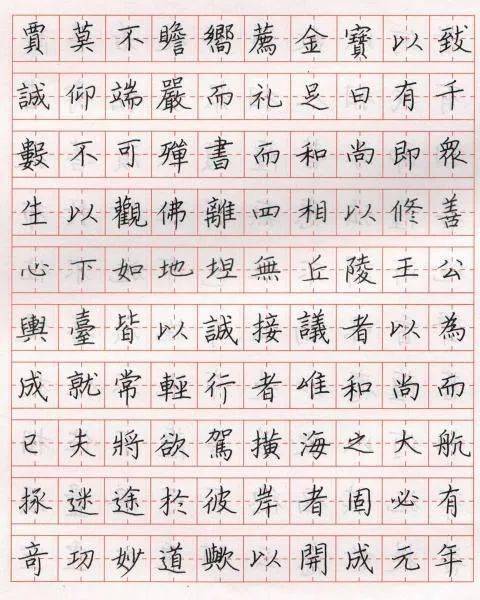 賈莫不瞻嚮薦金寶以致
誠仰端嚴而礼足日有千
數不可殫書而和尚即衆
生以觀佛離四相以修善
心下如地坦無丘陵王公
輿臺皆以誠接議者以為
成就常輕行者唯和尚而
已夫將欲駕橫海之大航
拯迷途於彼岸者固必有
奇功妙道歟以開成元年